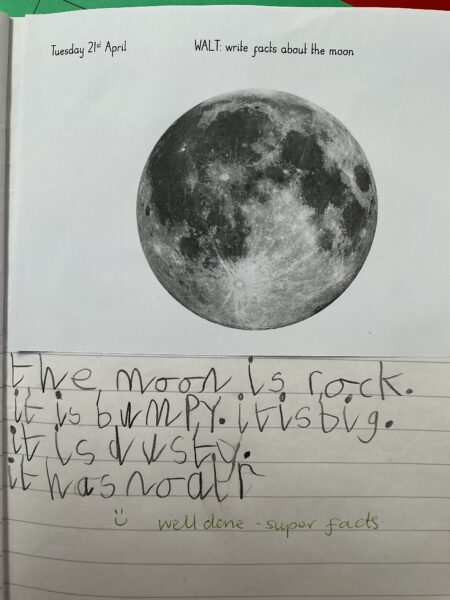 Tuesday 21st April WALT: write facts about the moon
the moon is rock.
it is bumpy. it is big.
it is dusty.
it has no air
well done - super facts